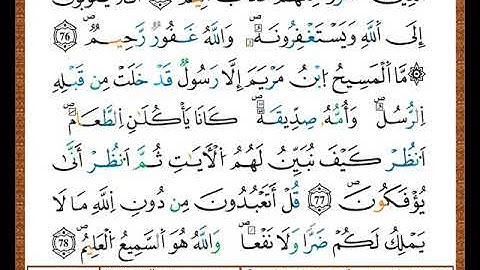 إِلَى اَللَّهِ وَيَسْتَغْفِرُونَهُۥ وَاللَّهُ غَفُورٌ رَّحِيمٌ 76
۞ مَّا اَلْمَسِيحُ اُبْنُ مَرْيَمَ إِلَّا رَسُولٌ قَدْ خَلَتْ مِن قَبْلِهِ
اِلرُّسُلُ وَأُمُّهُۥ صِدِّيقَةٌ كَانَا يَأْكُلَٰنِ اِلطَّعَامَ
اَنظُرْ كَيْفَ نُبَيِّنُ لَهُمُ اُلْأيَٰتِ ثُمَّ اَنظُرْ أَنَّىٰ
يُؤْفَكُونَ 77 قُلْ أَتَعْبُدُونَ مِن دُونِ اِللَّهِ مَا لَا
يَمْلِكُ لَكُمْ ضَرّاً وَلَا نَفْعاً وَاللَّهُ هُوَ اَلسَّمِيعُ اُلْعَلِيمُ 78